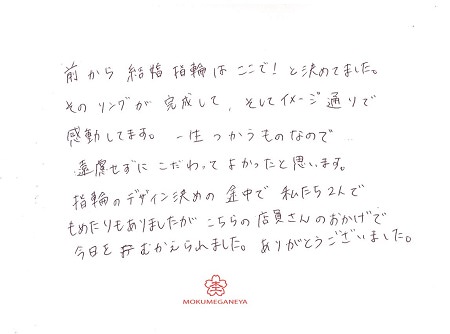 前から 結婚指輪は ここで！と決めてました。
そのリングが 完成して、そしてイメージ通りで
感動してます。一生つかうものなので
遠慮せずに こだわって よかったと思います。
指輪のデザイン決めの 途中で 私たち2人で
もめたりもありましたが こちらの店員さんのおかげで
今日を むかえられました。ありがとうございました。
MOKUMEGANEYA